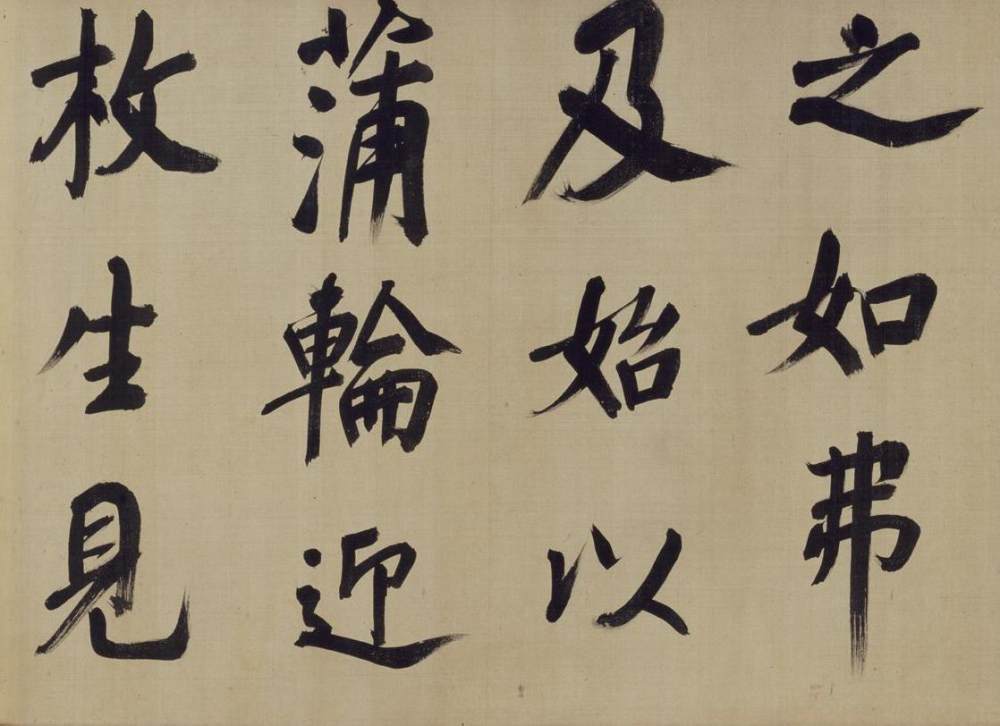 之如弗
及始以
蒲輪迎
枚生見